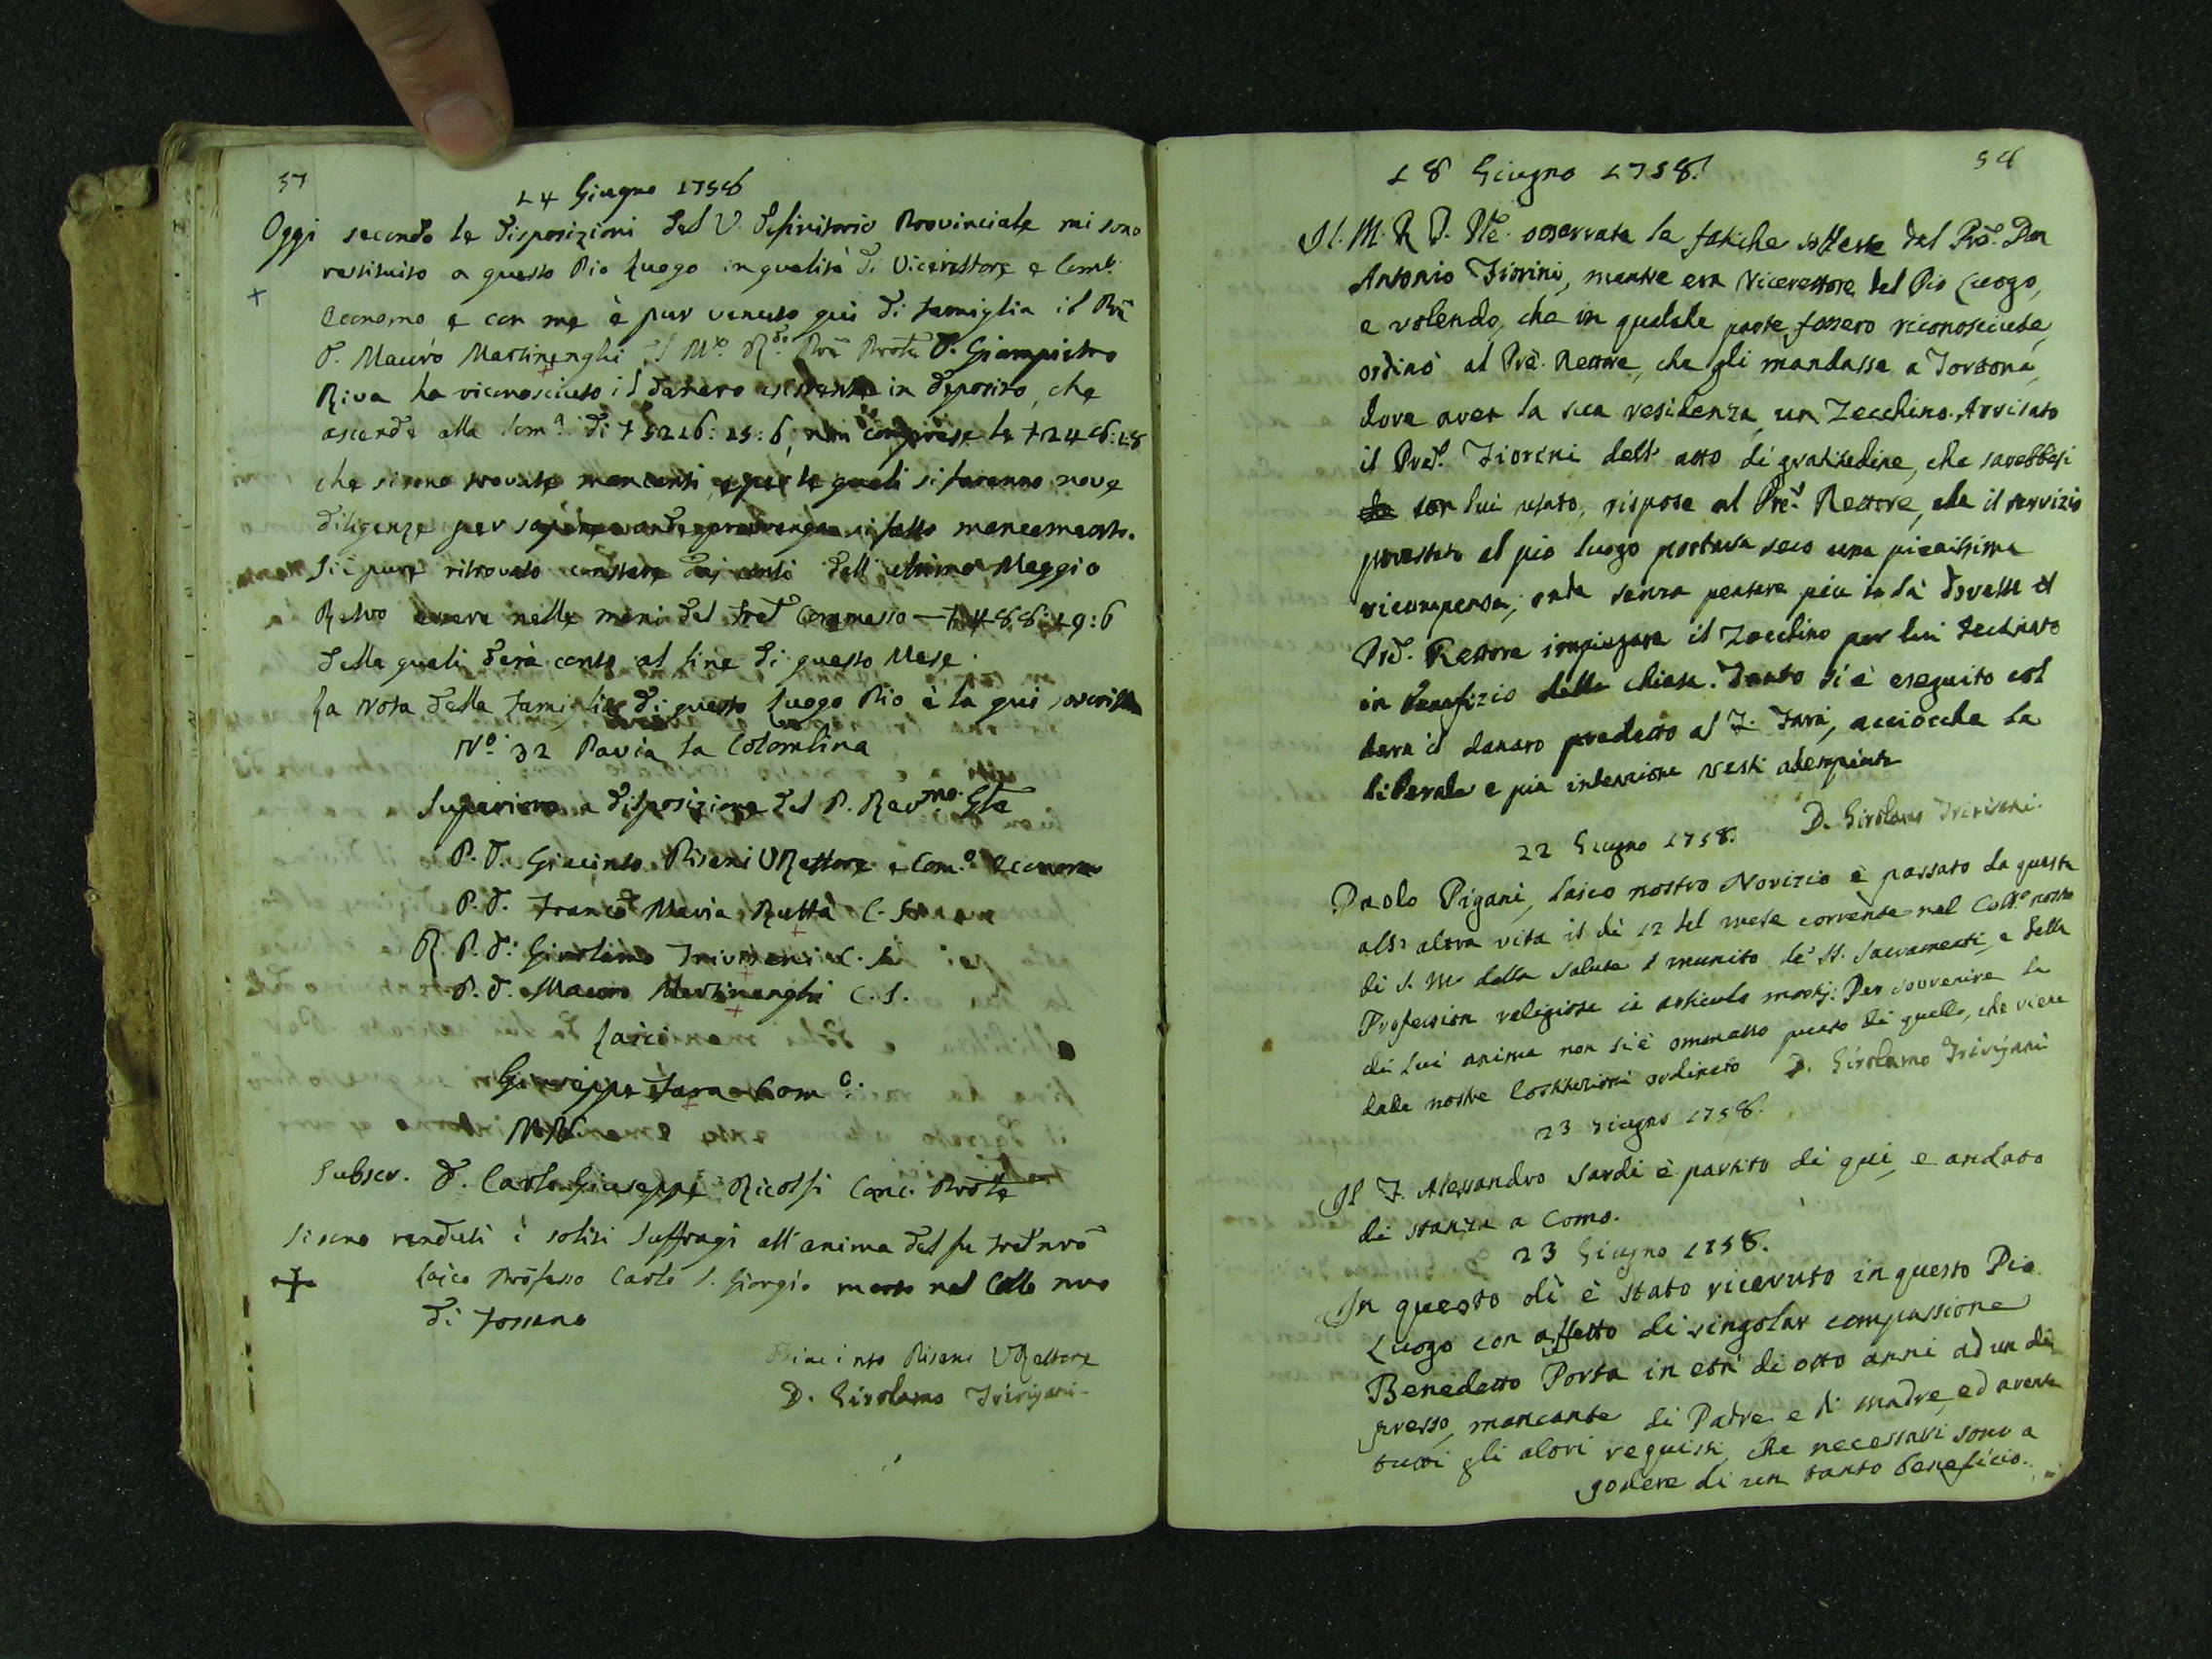 57
14 Giugno 1758
Oggi secondo le disposizioni del V. Definitorio Provinciale mi sono
restituito a questo Pio Luogo in qualità di Vicerettore e Com.
Economo e con me è pur venuto qui di famiglia il Prē
D. Mauro Martinenghi Il M.o R.do Prē Prote D. Giampietro
Riva ha riconosciuto il danaro esistente in deposito, che
ascende alla som.a di 5216:15:6, non comprese le 246:18
che si sono trovate mancanti, e per le quali si faranno nove
diligenze per sapere onde provenga sì fatto mancamento.
Si è pure ritrovato constare dai conti dell'ultimo Maggio
essere nelle mani del Fret Commesso — 488:19:6
delle quali darà conto al fine di questo Mese.
La Nota della famiglia di questo Luogo Pio è la qui soscritta
N.o 32 Pavia la Colombina
Superiore a disposizione del P. Rev.mo Gle
P. D. Giacinto Pisani VRettore e Com.o Economo
P. D. Franco Maria Rutta C. S.
R. P. D. Girolamo Trivisani C. S.
P. D. Mauro Martinenghi C. S.
Laici
Giuseppe Fara Com.o:
NN.
Subscr. D. Carlo Giuseppe Ricolfi Canc. Prole
Si sono renduti i soliti Suffragi all'anima del fu Fret nrō
Laico Professo Carlo S. Giorgio morto nel Collo nro
di Fossano
Giacinto Pisani VRettore
D. Girolamo Trivigani.
58
18 Giugno 1758.
Il M. R. P. Ple. osservate le fatiche sostese dal Prē. Don
Antonio Fiorini, mentre era Vicerettore del Pio Luogo,
e volendo, che in qualche parte fossero riconosciute,
ordinò al Prē. Rettore, che gli mandasse a Tortona,
dove aver la sua residenza, un Zecchino. Avvisato
il Pred. Fiorini dell'atto di gratitudine, che sarebbesi
con lui usato, rispose al Prē. Rettore, che il servizio
prestato al pio luogo portava seco una pienissima
ricompensa; onde senza pensare più in là dovesse il
Prd. Rettore impiegare il Zecchino per lui destinato
in benefizio della Chiesa. Tanto si è eseguito col
dare il danaro predetto al F. Fara, acciocche la
liberale e pia intenzione resti adempiuta
D. Girolamo Trivisani.
22 Giugno 1758.
Paolo Pigani, laico nostro Novizio è passato da questa
all' altra vita il dì 12 del mese corrente nel Coll.o nostro
di S. M. della Salute e munito de' SS. Sacramenti, e della
Profession religiosa in articulo mortis. Per sovvenire la
di lui anima non si è ommesso punto di quello, che viene
dalle nostre Costituzioni ordinato D. Girolamo Trivigani
23 Giugno 1758.
Il F. Alessandro Sardi è partito di qui, e andato
di stanza a Como.
23 Giugno 1758.
In questo dì è stato ricevuto in questo Pio
Luogo con affetto di singolar compassione
Benedetto Porta in età di otto anni ad un dì
presso, mancante di Padre e di madre, ed avente
tutti gli altri requisiti, che necessari sono a
godere di un tanto beneficio.